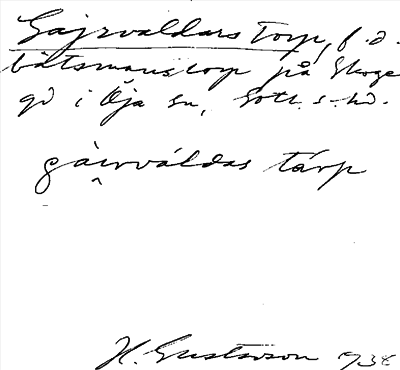 Gajrvaldars Torp, f.d.
båtsmanstorp på Skoge
gd i Öja sn, Gotl. s. hd.
gàirváldas tárp
H. Gustavson 1938